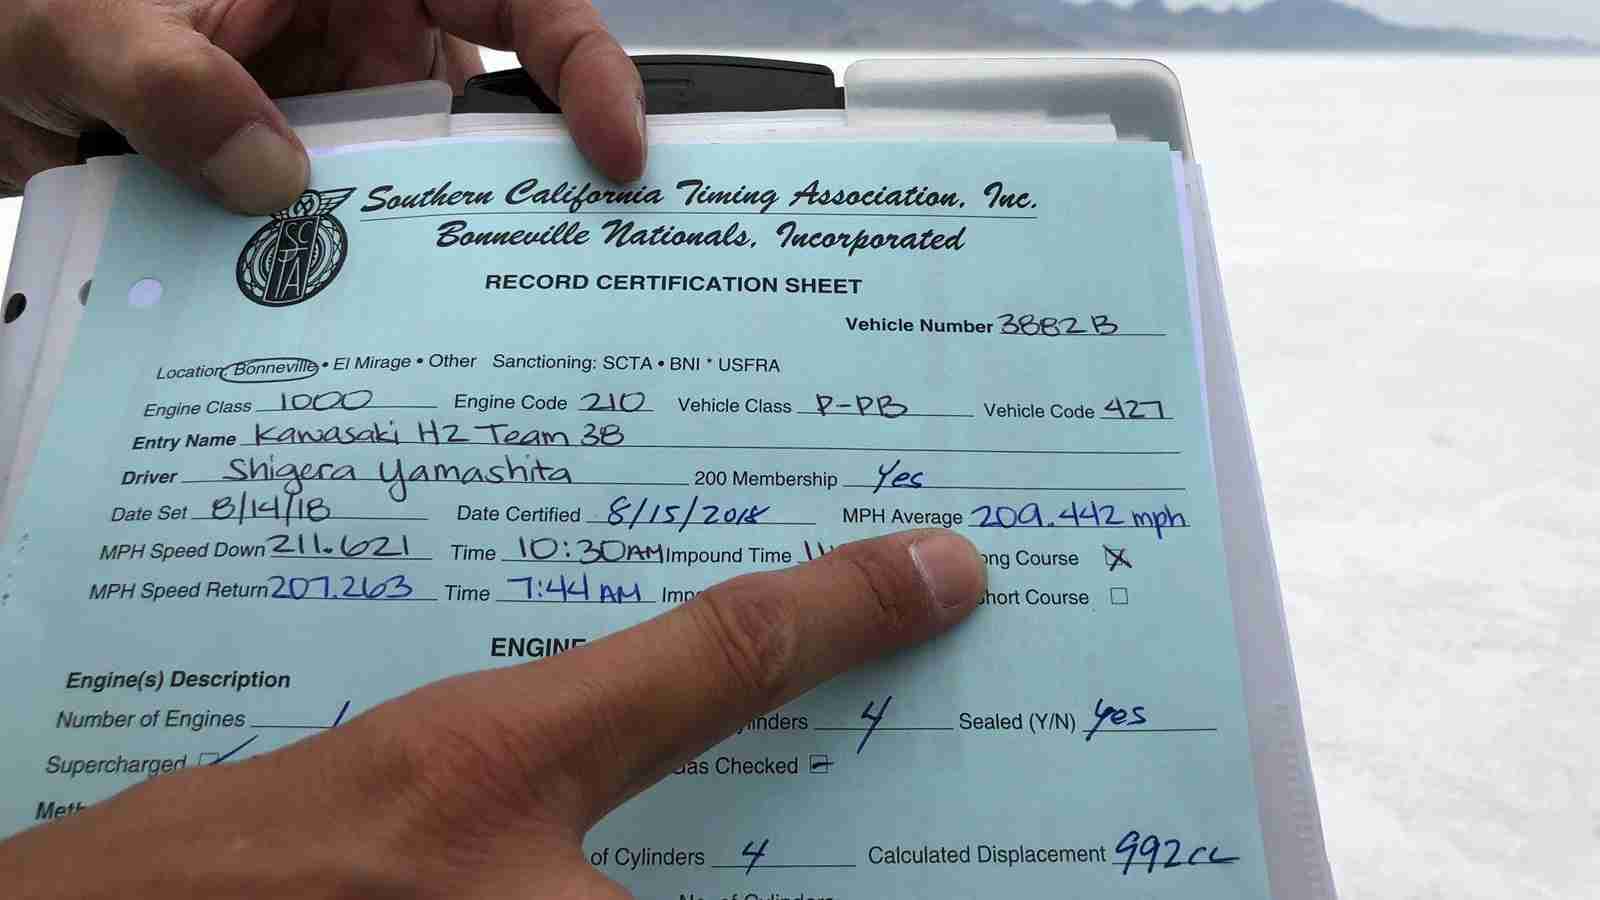 Southern California Timing Association, Inc.
Bonneville Nationals, Incorporated
SCTA
RECORD CERTIFICATION SHEET
Vehicle Number 3882B
Location: Bonneville • El Mirage • Other Sanctioning: SCTA • BNI * USFRA
Engine Class 1000 Engine Code 210 Vehicle Class P-PB Vehicle Code 427
Entry Name Kawasaki H2 Team 38
Driver Shigera Yamashita 200 Membership Yes
Date Set 8/14/18 Date Certified 8/15/2018 MPH Average 209.442 mph
MPH Speed Down 211.621 Time 10:30AM Impound Time Course
MPH Speed Return 207.263 Time 7:44 AM Course
Engine(s) Description
Number of Engines 1 4 Sealed (Y/N) Yes
Supercharged Checked
of Cylinders 4 Calculated Displacement 992cc